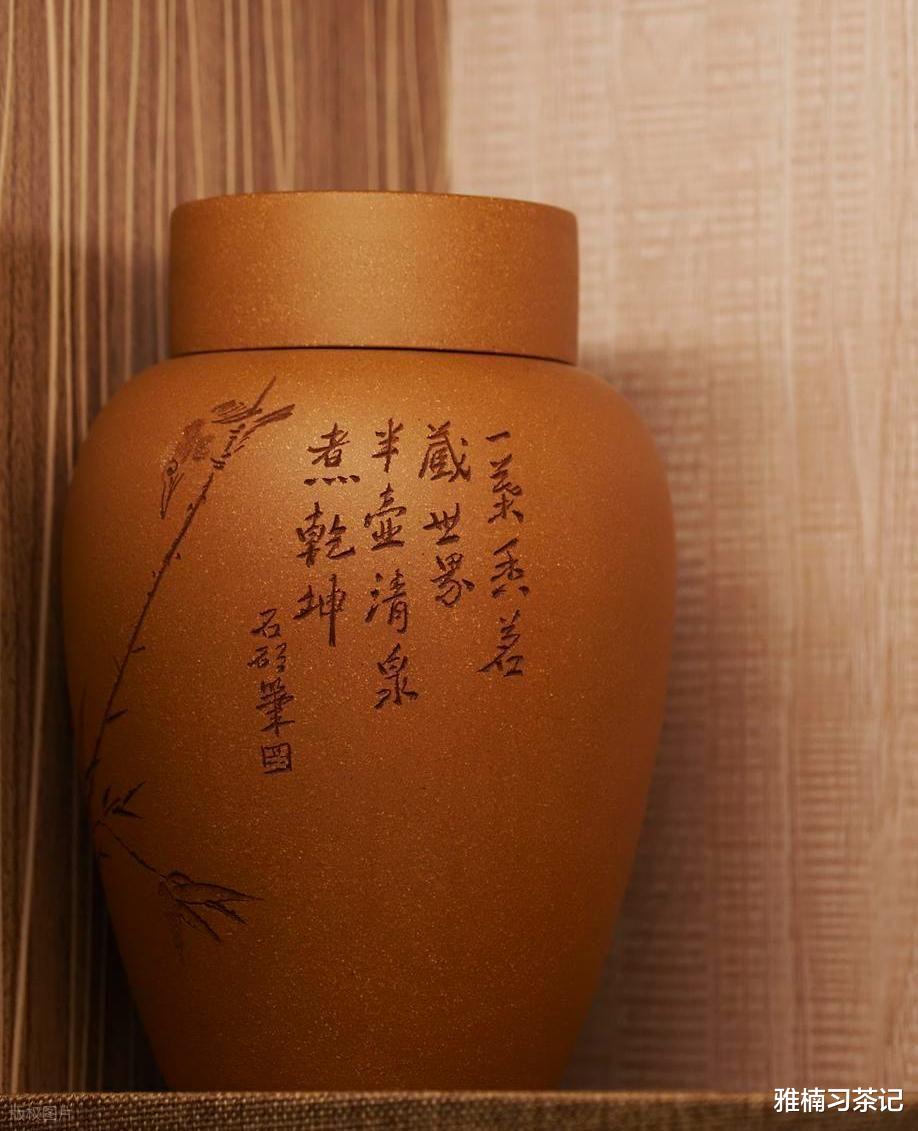 一葉香茗
藏世界
半壺清泉
煮乾坤
石
筆
雅楠习茶记
版权图片